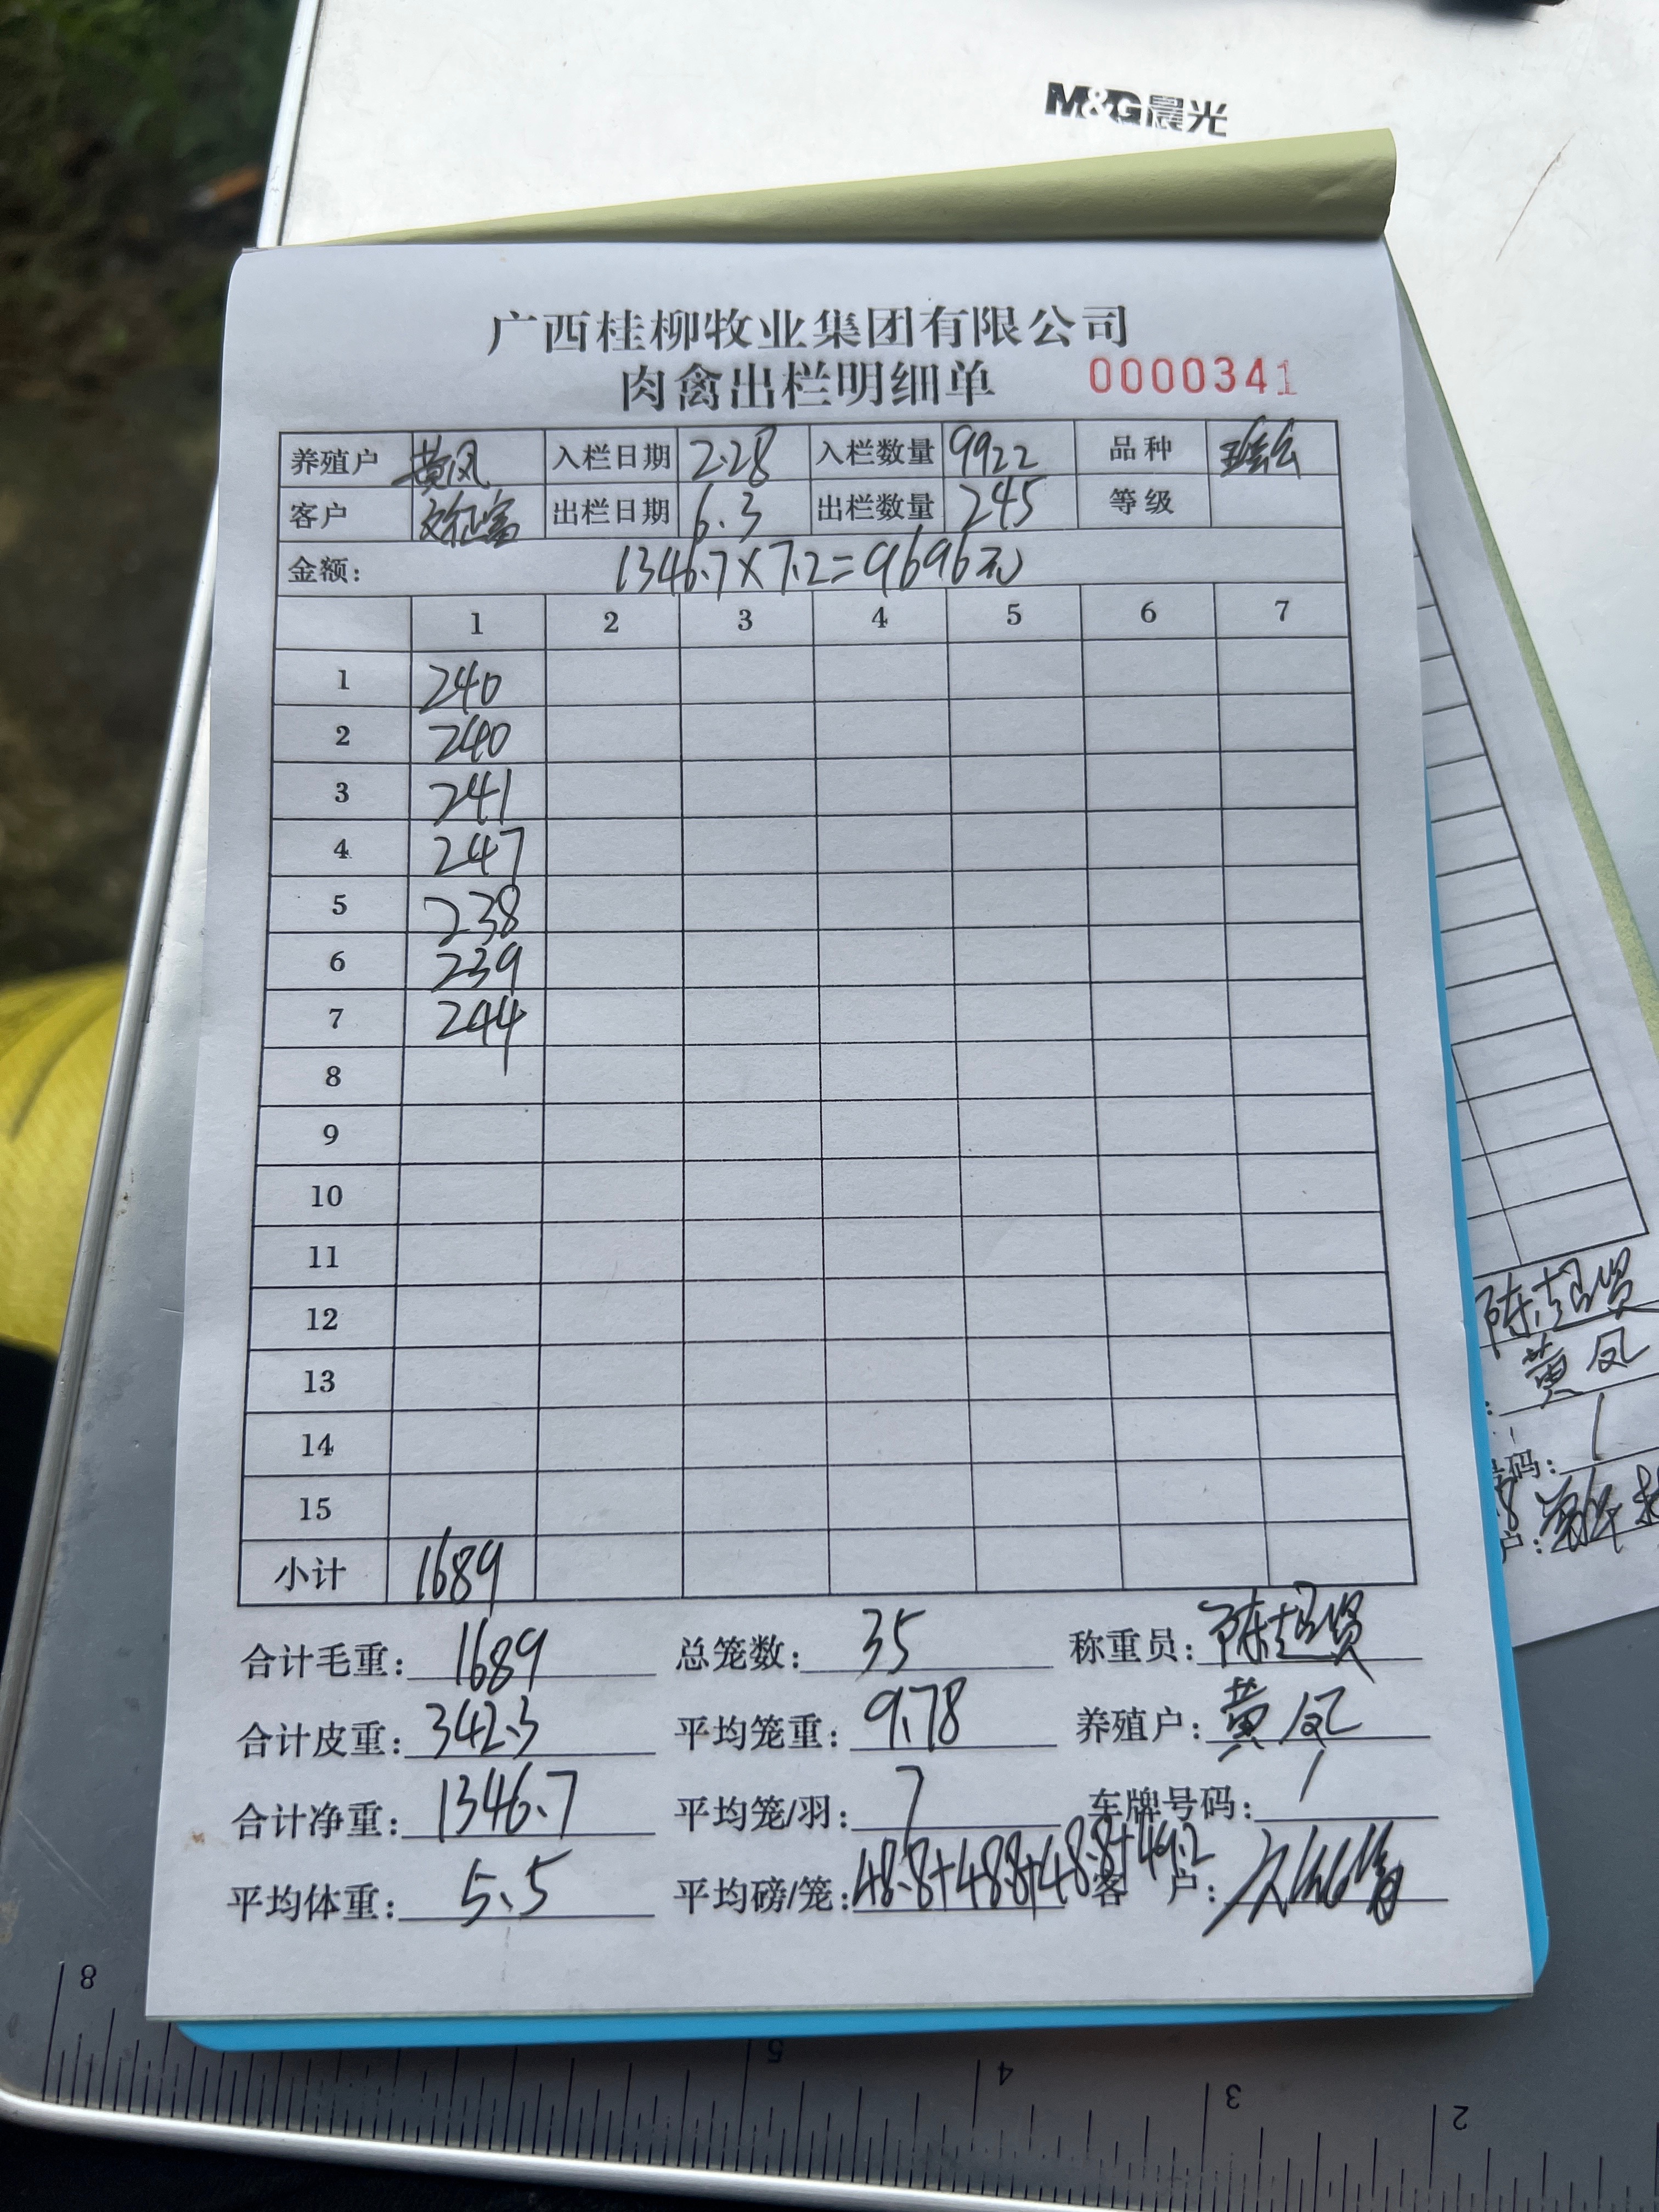 M&G晨光
广西桂柳牧业集团有限公司
肉禽出栏明细单 0000341
养殖户 黄凤 入栏日期 2.28 入栏数量 9922 品种
客户 出栏日期 6.3 出栏数量 245 等级
金额: 1346.7×7.2=9696元
1 2 3 4 5 6 7
1 240
2 240
3 241
4 247
5 238
6 239
7 244
8
9
10
11
12
13
14
15
小计 1689
合计毛重: 1689 总笼数: 35 称重员: 陈超贤
合计皮重: 342.3 平均笼重: 9.78 养殖户: 黄凤
合计净重: 1346.7 平均笼/羽: 7 车牌号码: /
平均体重: 5.5 平均磅/笼: 48.8+48.8+48.8+49.2 客户:
陈超贤
黄凤
码: /
户:
8 5 4 3 2